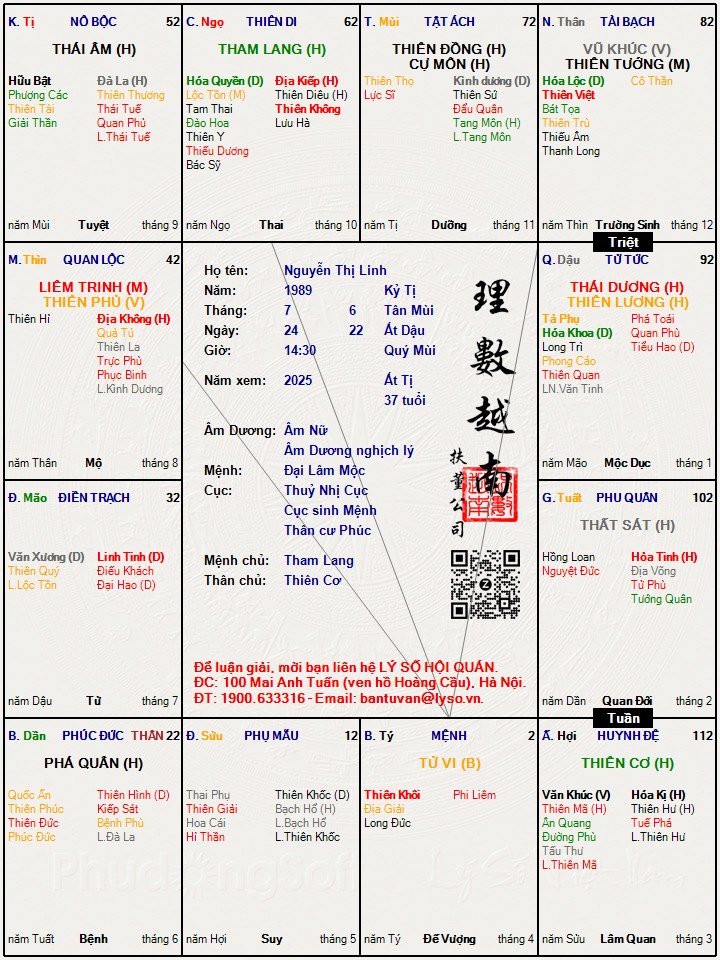 K. Tị NÔ BỘC 52
THÁI ÂM (H)
Hữu Bật
Phượng Các
Thiên Tài
Giải Thần
Đà La (H)
Thiên Thương
Thái Tuế
Quan Phủ
L.Thái Tuế
năm Mùi Tuyệt tháng 9
C. Ngọ THIÊN DI 62
THAM LANG (H)
Hóa Quyền (D)
Lộc Tồn (M)
Tam Thai
Đào Hoa
Thiên Y
Thiếu Dương
Bác Sỹ
Địa Kiếp (H)
Thiên Diêu (H)
Thiên Không
Lưu Hà
năm Ngọ Thai tháng 10
T. Mùi TẬT ÁCH 72
THIÊN ĐỒNG (H)
CỰ MÔN (H)
Thiên Thọ
Lực Sĩ
Kình dương (D)
Thiên Sứ
Đẩu Quân
Tang Môn (H)
L.Tang Môn
năm Tị Dưỡng tháng 11
N. Thân TÀI BẠCH 82
VŨ KHÚC (V)
THIÊN TƯỚNG (M)
Hóa Lộc (D)
Thiên Việt
Bát Tọa
Thiên Trù
Thiếu Âm
Thanh Long
Cô Thần
năm Thìn Trường Sinh tháng 12
Triệt
M. Thìn QUAN LỘC 42
LIÊM TRINH (M)
THIÊN PHỦ (V)
Thiên Hỉ
Địa Không (H)
Quả Tú
Thiên La
Trực Phù
Phục Binh
L.Kình Dương
năm Thân Mộ tháng 8
Họ tên: Nguyễn Thị Linh
Năm: 1989 Kỷ Tị
Tháng: 7 6 Tân Mùi
Ngày: 24 22 Ất Dậu
Giờ: 14:30 Quý Mùi
Năm xem: 2025 Ất Tị
37 tuổi
Âm Dương: Âm Nữ
Âm Dương nghịch lý
Mệnh: Đại Lâm Mộc
Cục: Thuỷ Nhị Cục
Cục sinh Mệnh
Thân cư Phúc
Mệnh chủ: Tham Lang
Thân chủ: Thiên Cơ
理數越南
扶董公司
Để luận giải, mời bạn liên hệ LÝ SỐ HỘI QUÁN.
ĐC: 100 Mai Anh Tuấn (ven hồ Hoàng Cầu), Hà Nội.
ĐT: 1900.633316 - Email: bantuvan@lyso.vn.
Q. Dậu TỬ TỨC 92
THÁI DƯƠNG (H)
THIÊN LƯƠNG (H)
Tả Phụ
Hóa Khoa (D)
Long Trì
Phong Cáo
Thiên Quan
LN.Văn Tinh
Phá Toái
Quan Phù
Tiểu Hao (D)
năm Mão Mộc Dục tháng 1
Đ. Mão ĐIỀN TRẠCH 32
Văn Xương (D)
Thiên Quý
L.Lộc Tồn
Linh Tinh (D)
Điếu Khách
Đại Hao (D)
năm Dậu Tử tháng 7
G. Tuất PHU QUÂN 102
THẤT SÁT (H)
Hồng Loan
Nguyệt Đức
Hỏa Tinh (H)
Địa Võng
Tử Phù
Tướng Quân
năm Dần Quan Đới tháng 2
Tuần
B. Dần PHÚC ĐỨC THÂN 22
PHÁ QUÂN (H)
Quốc Ấn
Thiên Phúc
Thiên Đức
Phúc Đức
Thiên Hình (D)
Kiếp Sát
Bệnh Phù
L.Đà La
năm Tuất Bệnh tháng 6
Đ. Sửu PHỤ MẪU 12
Thai Phụ
Thiên Giải
Hoa Cái
Hỉ Thần
Thiên Khốc (D)
Bạch Hổ (H)
L.Bạch Hổ
L.Thiên Khốc
năm Hợi Suy tháng 5
B. Tý MỆNH 2
TỬ VI (B)
Thiên Khôi
Địa Giải
Long Đức
Phi Liêm
năm Tý Đế Vượng tháng 4
Ấ. Hợi HUYNH ĐỆ 112
THIÊN CƠ (H)
Văn Khúc (V)
Thiên Mã (H)
Ân Quang
Đường Phù
Tấu Thư
L.Thiên Mã
Hóa Kị (H)
Thiên Hư (H)
Tuế Phá
L.Thiên Hư
năm Sửu Lâm Quan tháng 3